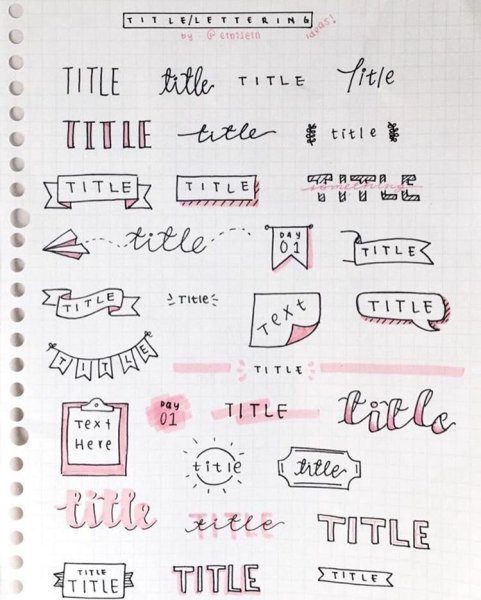 TITLE/LETTERING
ideas!
by
TITLE title TITLE Title
TITLE title title TITLE something
TITLE TITLE
title DAY 01 TITLE
TITLE Title Text TITLE
TITLE
TITLE
Text Here DAY 01 TITLE title
title title
title title TITLE
TITLE TITLE TITLE TITLE